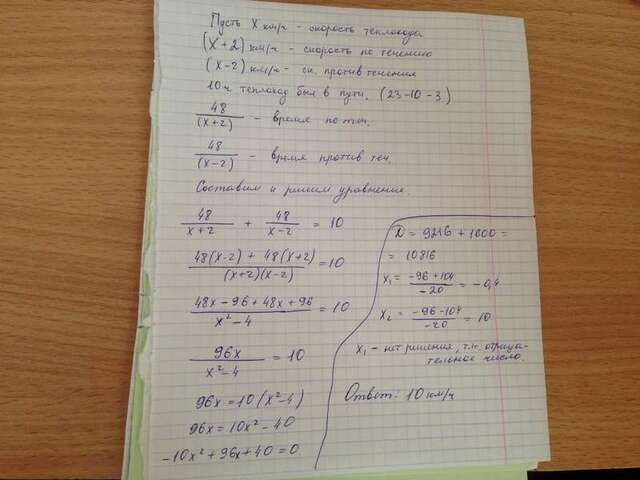 Пусть X км/ч - скорость теплохода
(X+2) км/ч - скорость по течению
(X-2) км/ч - ск. против течения
10 ч теплоход был в пути. (23-10-3)
48/(X+2) - время по теч.
48/(X-2) - время против теч
Составим и решим уравнение.
48/(X+2) + 48/(X-2) = 10
(48(X-2) + 48(X+2))/((X+2)(X-2)) = 10
(48X-96+48X+96)/(X²-4) = 10
96X/(X²-4) = 10
96X = 10(X²-4)
96X = 10X²-40
-10X²+96X+40=0
D = 9216 + 1600 =
= 10816
X₁ = (-96+104)/(-20) = -0,4
X₂ = (-96-104)/(-20) = 10
X₁ - нет решения, т.к. отрица-
тельное число.
Ответ: 10 км/ч